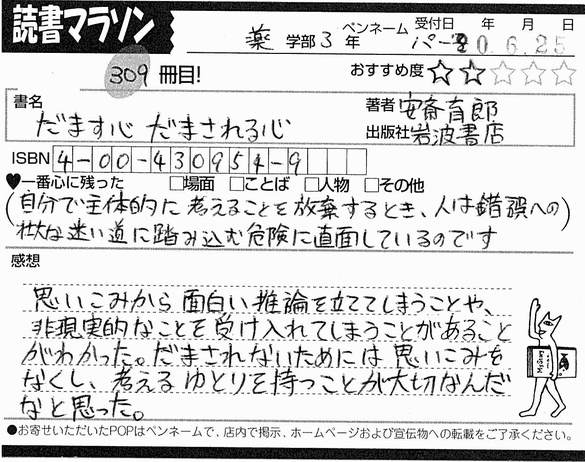 読書マラソン
薬 学部 3 年
ペンネーム パー
受付日 年 月 日
20.6.25
309 冊目!
おすすめ度 ☆☆☆☆☆
書名
だます心 だまされる心
著者 安斎育郎
出版社 岩波書店
ISBN 4-00-430954-9
♥一番心に残った □場面 □ことば □人物 □その他
(自分で主体的に考えることを放棄するとき、人は錯誤への)
壮大な迷い道に踏み込む危険に直面しているのです
感想
思いこみから面白い推論を立ててしまうことや、
非現実的なことを受け入れてしまうことがあること
がわかった。だまされないためには思いこみを
なくし、考えるゆとりを持つことが大切なんだ
なと思った。
●お寄せいただいたPOPはペンネームで、店内で掲示、ホームページおよび宣伝物への転載をご了承ください。